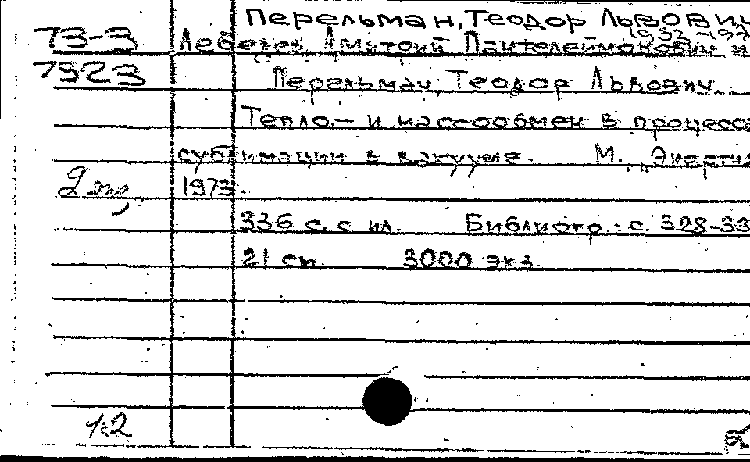 Перельман, Теодор Львович
73-3 Лебедев Дмитрий Пантелеймонович и
7923 Перельман, Теодор Львович.
Тепло- и массообмен в процесса
сублимации в вакууме. М., Энерги
2 1973.
336 с. с ил. Библиогр.: с. 328-33
21 см. 3000 экз.
1:2